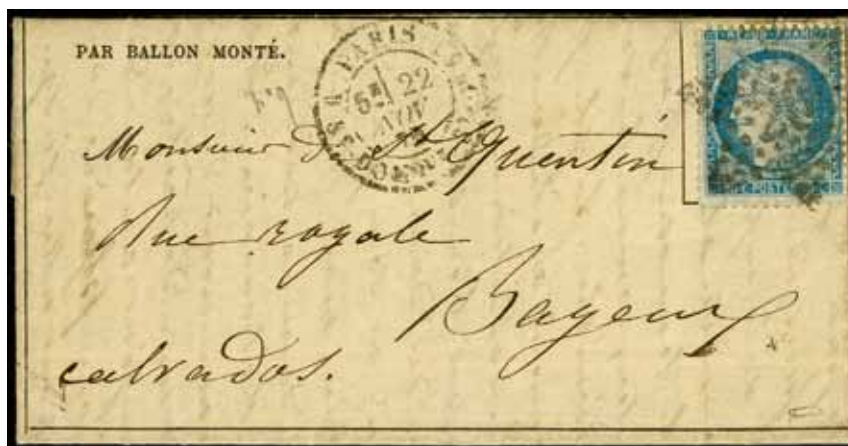 PAR BALLON MONTÉ.
PARIS
5E 22
NOV
REPUB. FRANC.
POSTES
Monsieur de St Quentin
Rue royale
Bayeux
calvados.